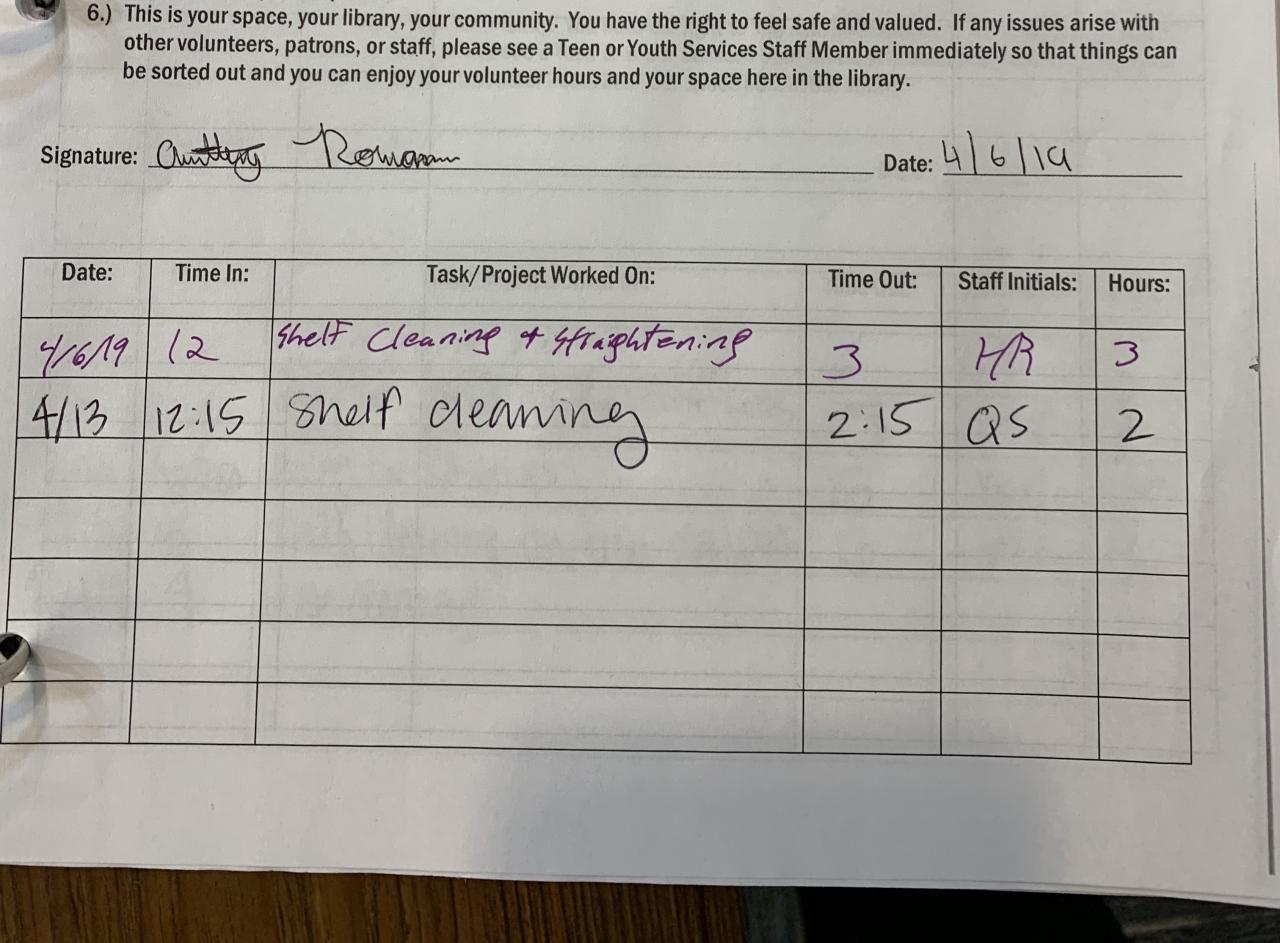 6.) This is your space, your library, your community. You have the right to feel safe and valued. If any issues arise with
other volunteers, patrons, or staff, please see a Teen or Youth Services Staff Member immediately so that things can
be sorted out and you can enjoy your volunteer hours and your space here in the library.
Signature: Roman Date: 4/6/19
Date: Time In: Task/Project Worked On: Time Out: Staff Initials: Hours:
4/6/19 12 Shelf Cleaning & Straightening 3 HR 3
4/13 12:15 Shelf cleaning 2:15 QS 2